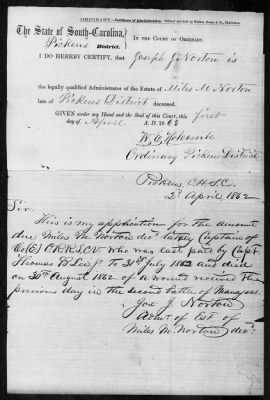 ORDINARY—Certificate of Administration.
The State of South-Carolina,
Pickens
District.
IN THE COURT OF ORDINARY.
I DO HEREBY CERTIFY, that Joseph J Norton is
the legally qualified Administrator of the Estate of Miles M Norton
late of Pickens District deceased.
GIVEN under my Hand and the Seal of this Court, this first
day of April A. D. 186
W. E. Holcombe
Ordinary Pickens District
Pickens, C.H. S.C.
2d April 186
Sir.
This is my application for the amount
due Miles M. Norton decd lately Captain of
Co (E) O.R.R.S.C.V. who was last paid by Capt
Thomas B. Lee jr to 31st July 1862 and died
on 30th August 1862 of a wound received the
previous day in the second battle of Manassas.
Jos J Norton
Admr of Est of
Miles M. Norton decd